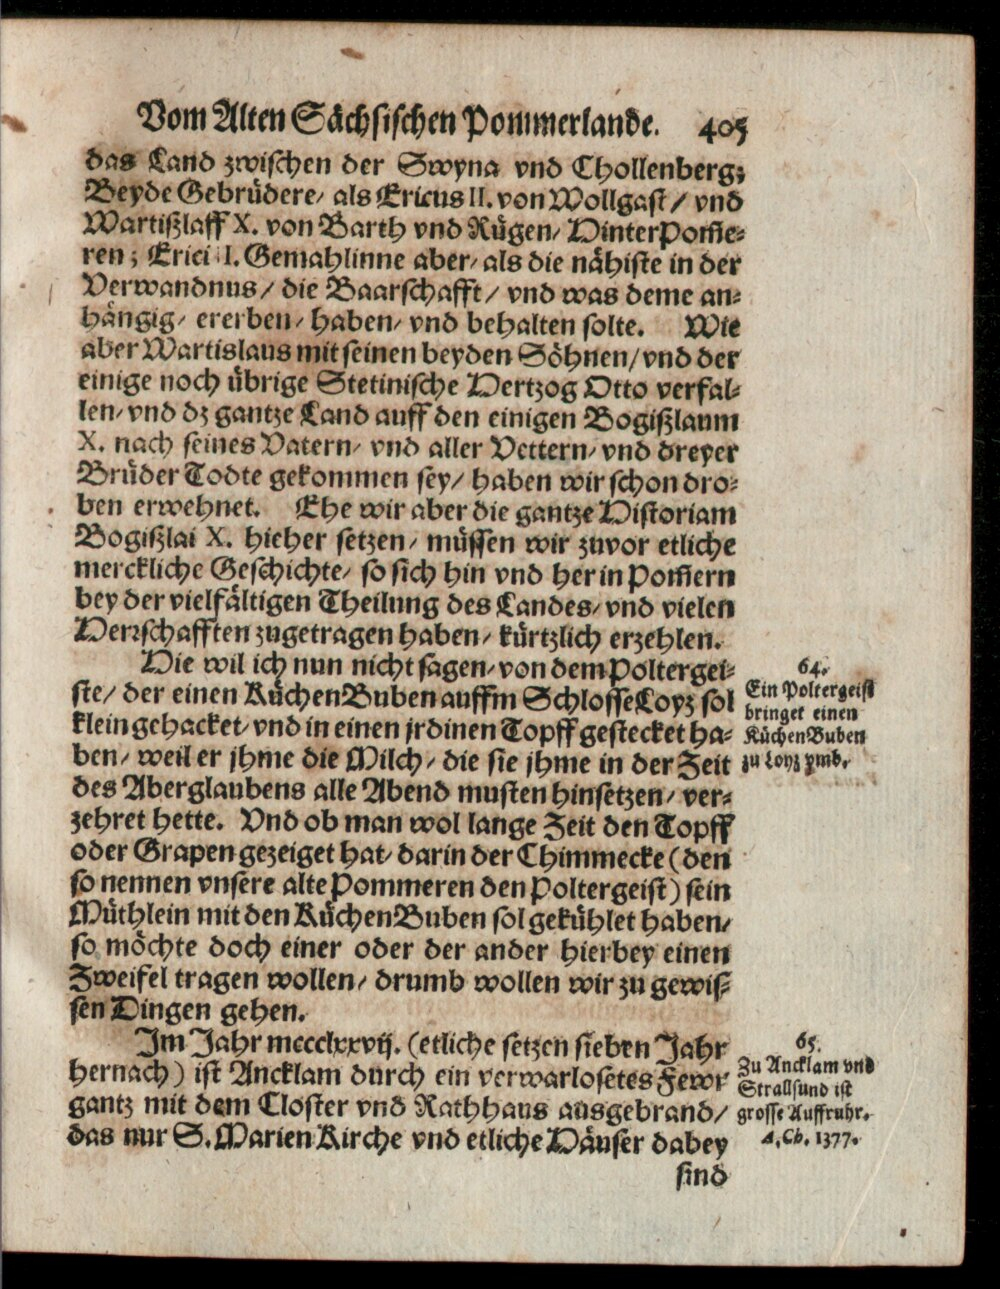 Vom Alten Sächsischen Pommerlande. 405
das Land zwischen der Swyna vnd Chollenberg;
Beyde Gebrüdere/ als Ericus II. von Wollgast / vnd
Wartißlaff X. von Barth vnd Rügen/ HinterPom̃e⸗
ren; Erici I. Gemahlinne aber/ als die nähiste in der
Verwandnus / die Baarschafft / vnd was deme an⸗
hängig/ ererben/ haben/ vnd behalten solte. Wie
aber Wartislaus mit seinen beyden Söhnen/ vnd der
einige noch übrige Stetinische Hertzog Otto verfal⸗
len/ vnd dz gantze Land auff den einigen Bogißlaum
X. nach seines Vatern/ vnd aller Vettern/ vnd dreyer
Brüder Todte gekommen sey/ haben wir schon dro⸗
ben erwehnet. Ehe wir aber die gantze Historiam
Bogißlai X. hieher setzen/ müssen wir zuvor etliche
merckliche Geschichte/ so sich hin vnd her in Pom̃ern
bey der vielfältigen Theilung des Landes/ vnd vielen
Herrschafften zugetragen haben/ kürtzlich erzehlen.
Hie wil ich nun nicht sagen/ von dem Poltergei⸗
ste/ der einen KüchenBuben auffm Schlosse Loyz sol
klein gehacket/ vnd in einen jrdinen Topff gestecket ha⸗
ben/ weil er jhme die Milch/ die sie jhme in der Zeit
des Aberglaubens alle Abend musten hinsetzen/ ver⸗
zehret hette. Vnd ob man wol lange Zeit den Topff
oder Grapen gezeiget hat/ darin der Chimmecke (den
so nennen vnsere alte Pommeren den Poltergeist) sein
Müthlein mit den KüchenBuben sol gekühlet haben/
so möchte doch einer oder der ander hierbey einen
Zweifel tragen wollen/ drumb wollen wir zu gewis⸗
sen Dingen gehen.
64.
Ein Poltergeist
bringet einen
KüchenBuben
zu Loyz vmb.
Im Jahr mccclxxvij. (etliche setzen sieben Jahr
hernach) ist Ancklam durch ein verwarlosetes Fewr
gantz mit dem Closter vnd Rathhaus ausgebrand/
das nur S. Marien Kirche vnd etliche Häuser dabey
sind
65.
Zu Ancklam vnd
Strallsund ist
grosse Auffruhr.
A. Ch. 1377.